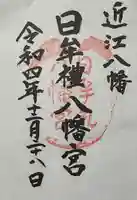 近江八幡
日牟禮八幡宮
令和四年十二月二十八日